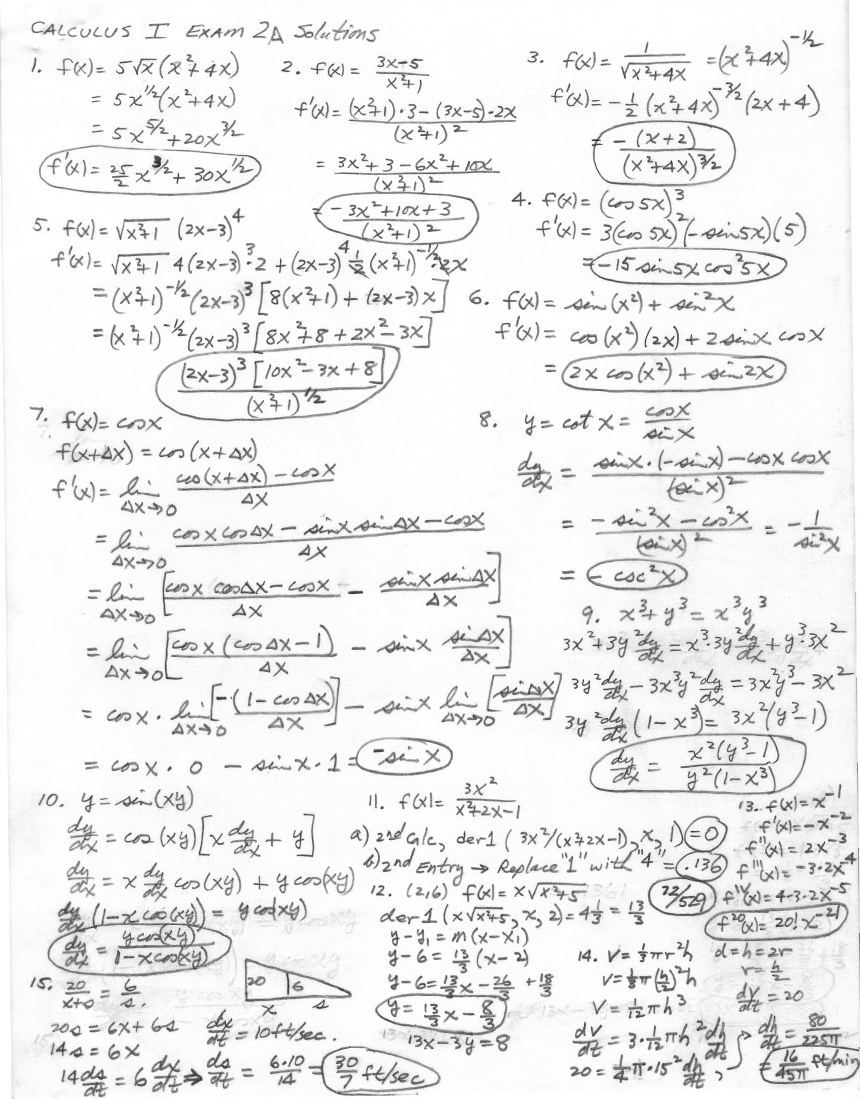 CALCULUS I EXAM 2A Solutions
1. f(x) = 5√x (x²+4x)
= 5x^{1/2}(x²+4x)
= 5x^{5/2}+20x^{3/2}
f'(x) = 25/2 x^{3/2} + 30x^{1/2}
2. f(x) = (3x-5)/(x²+1)
f'(x) = ((x²+1)·3-(3x-5)·2x)/(x²+1)²
= (3x²+3-6x²+10x)/(x²+1)²
= (-3x²+10x+3)/(x²+1)²
3. f(x) = 1/√(x²+4x) = (x²+4x)^{-1/2}
f'(x) = -1/2 (x²+4x)^{-3/2} (2x+4)
= -(x+2)/(x²+4x)^{3/2}
4. f(x) = (cos 5x)³
f'(x) = 3(cos 5x)²(-sin 5x)(5)
= -15 sin 5x cos² 5x
5. f(x) = √(x²+1) (2x-3)⁴
f'(x) = √(x²+1) 4(2x-3)³·2 + (2x-3)⁴ 1/2 (x²+1)^{-1/2}·2x
= (x²+1)^{-1/2} (2x-3)³ [8(x²+1) + (2x-3)x]
= (x²+1)^{-1/2} (2x-3)³ [8x²+8+2x²-3x]
(2x-3)³ [10x²-3x+8]/(x²+1)^{1/2}
6. f(x) = sin(x²) + sin²x
f'(x) = cos(x²)(2x) + 2 sinx cosx
= 2x cos(x²) + sin 2x
7. f(x) = cosx
f(x+Δx) = cos(x+Δx)
f'(x) = lim_{Δx→0} (cos(x+Δx) - cosx)/Δx
= lim_{Δx→0} (cosx cosΔx - sinx sinΔx - cosx)/Δx
= lim_{Δx→0} [(cosx cosΔx - cosx)/Δx - (sinx sinΔx)/Δx]
= lim_{Δx→0} [cosx (cosΔx-1)/Δx - sinx sinΔx/Δx]
= cosx · lim_{Δx→0} [-(1-cosΔx)/Δx] - sinx lim_{Δx→0} [sinΔx/Δx]
= cosx · 0 - sinx · 1 = -sinx
8. y = cot x = cosx/sinx
dy/dx = (sinx·(-sinx) - cosx cosx)/(sinx)²
= (-sin²x - cos²x)/(sinx)² = -1/sin²x
= -csc²x
9. x³+y³ = x³y³
3x²+3y² dy/dx = x³·3y² dy/dx + y³·3x²
3y² dy/dx - 3x³y² dy/dx = 3x²y³ - 3x²
3y² dy/dx (1-x³) = 3x²(y³-1)
dy/dx = x²(y³-1)/(y²(1-x³))
10. y = sin(xy)
dy/dx = cos(xy)[x dy/dx + y]
dy/dx = x dy/dx cos(xy) + y cos(xy)
dy/dx (1-x cos(xy)) = y cos(xy)
dy/dx = y cos(xy)/(1-x cos(xy))
11. f(x) = 3x²/(x²+2x-1)
a) 2nd Calc, der1 (3x²/(x²+2x-1), x, 1) = 0
b) 2nd Entry → Replace "1" with "4" = .136
72/529
12. (2,6) f(x) = x√(x²+5)
der1 (x√(x²+5), x, 2) = 4 1/3 = 13/3
y-y₁ = m(x-x₁)
y-6 = 13/3 (x-2)
y-6 = 13/3 x - 26/3 + 18/3
y = 13/3 x - 8/3
13x-3y = 8
13. f(x) = x⁻¹
f'(x) = -x⁻²
f''(x) = 2x⁻³
f'''(x) = -3·2x⁻⁴
f^{IV}(x) = 4·3·2x⁻⁵
f²⁰(x) = 20! x⁻²¹
14. V = 1/3 πr²h
V = 1/3 π(h/2)²h
V = 1/12 πh³
dV/dt = 3·1/12 πh² dh/dt
20 = 1/4 π·15² dh/dt,
d=h=2r
r = h/2
dV/dt = 20
→ dh/dt = 80/225π
= 16/45π ft/min
15. 20/(x+s) = 6/s.
20 6
x s
20s = 6x+6s
dx/dt = 10 ft/sec.
14s = 6x
14 ds/dt = 6 dx/dt ⇒ ds/dt = 6·10/14 = 30/7 ft/sec